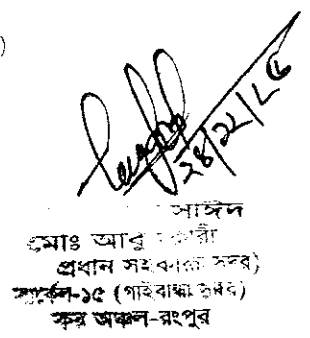 )
২৪/১২/২৫
সাঈদ
মোঃ আবু
প্রধান সহকারী সদর)
সার্কেল-১৫ (গাইবান্ধা সদর)
কর অঞ্চল-রংপুর